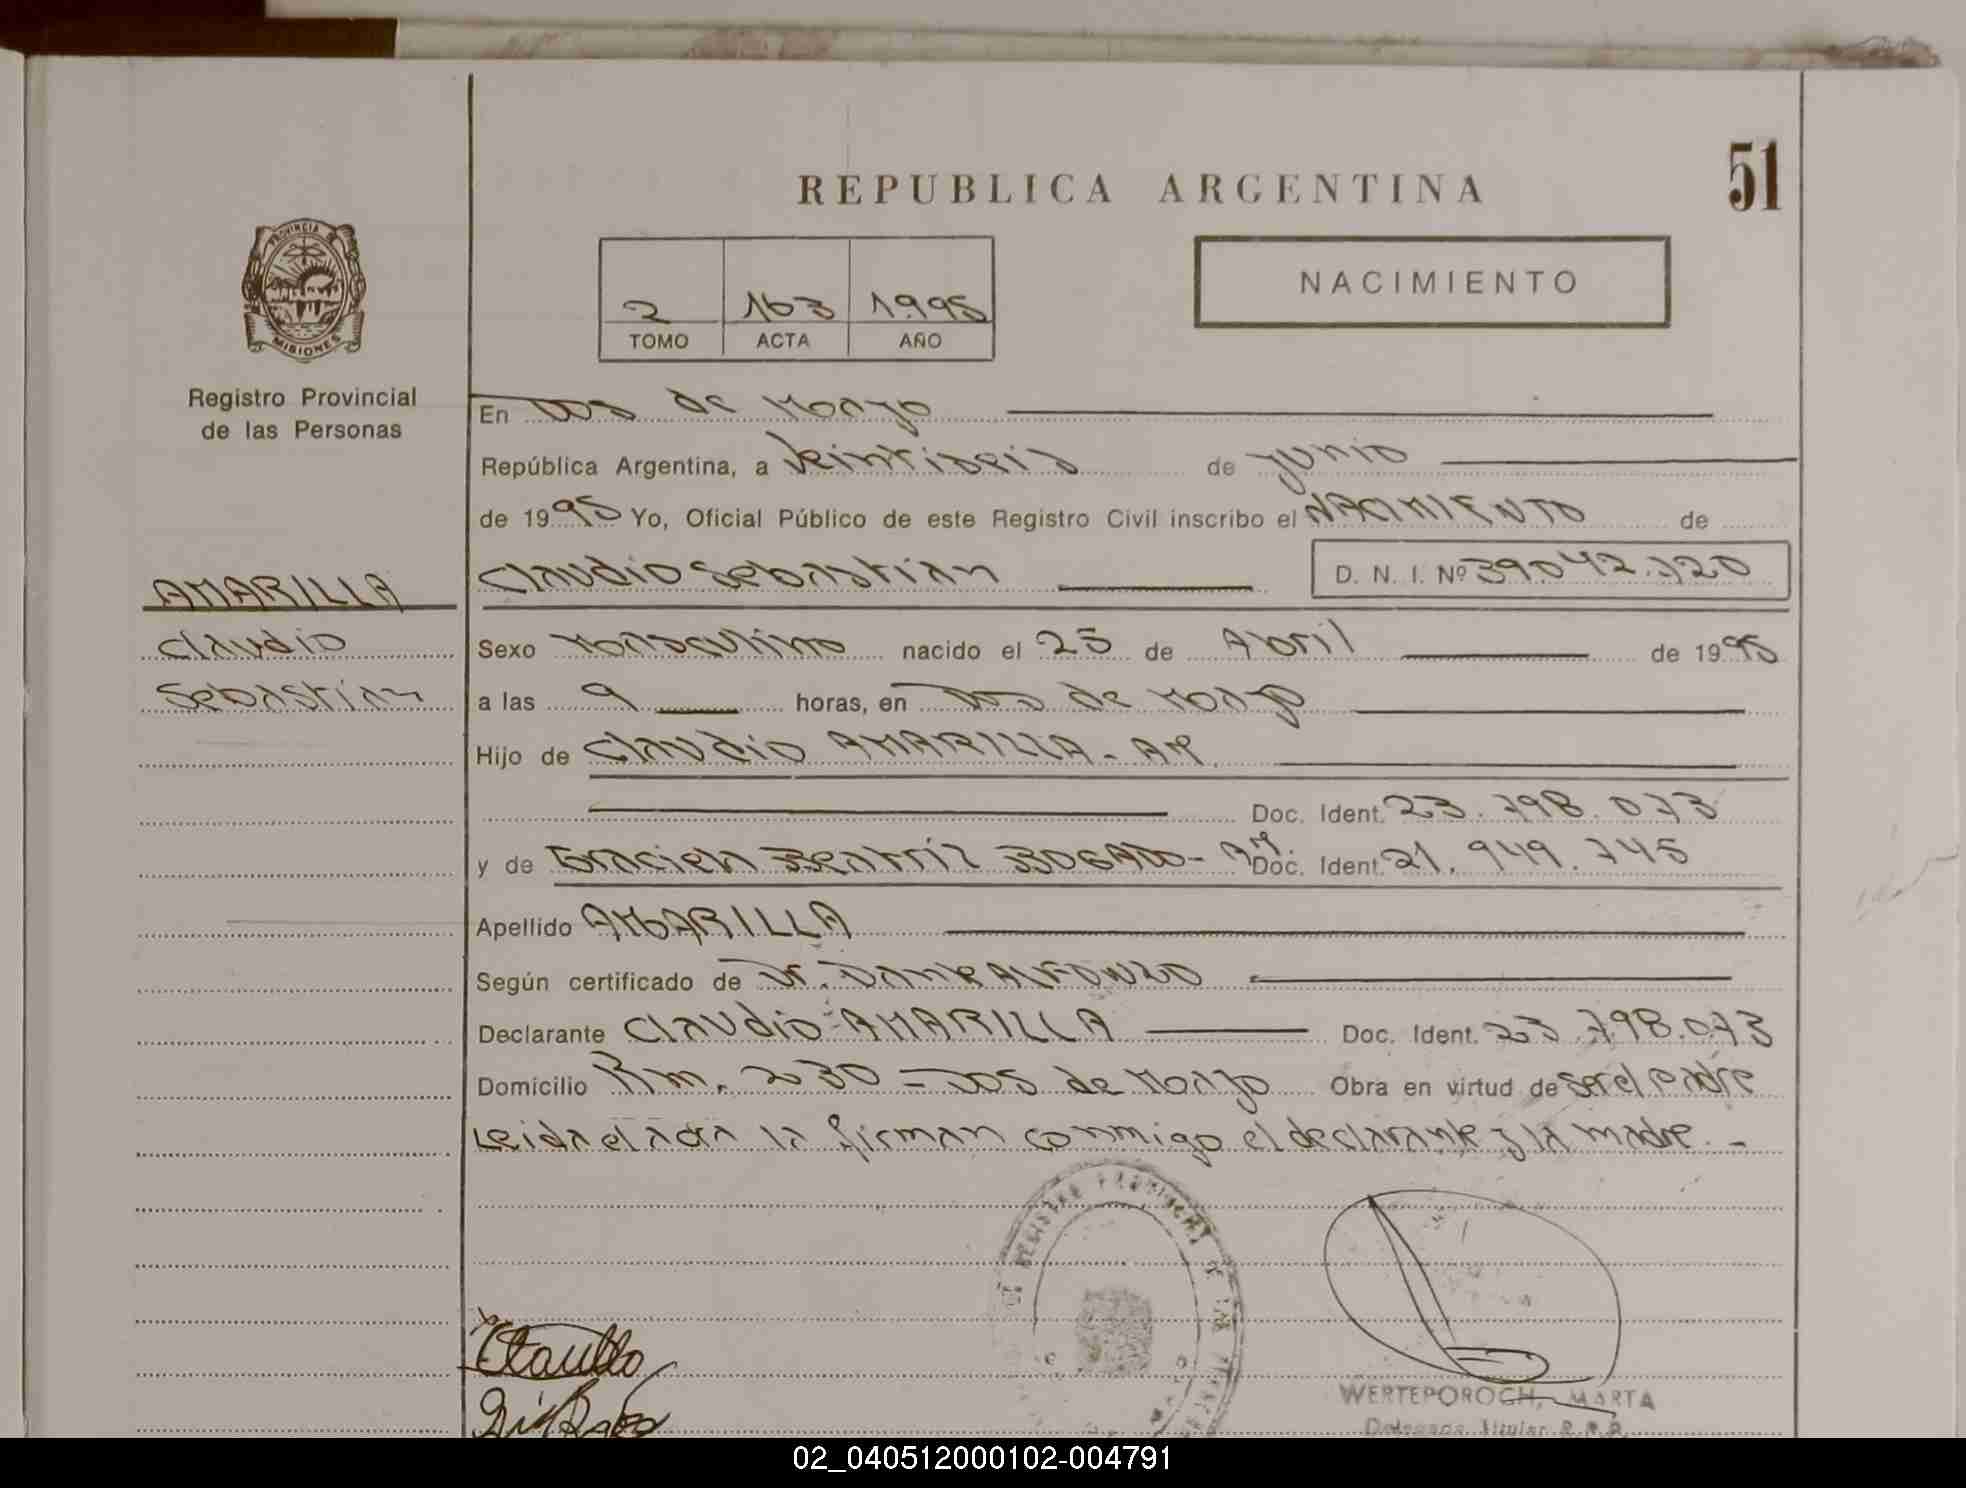 REPUBLICA ARGENTINA
51
PROVINCIA DE
MISIONES
Registro Provincial
de las Personas
2 163 1995
TOMO ACTA AÑO
NACIMIENTO
En Dos de Mayo
República Argentina, a Veintiseis de junio
de 1995 Yo, Oficial Público de este Registro Civil inscribo el NACIMIENTO de
Claudio Sebastián D. N. I. Nº 39.042.720
AMARILLA
Claudio
Sebastián
Sexo Masculino nacido el 25 de Abril de 1995
a las 9 horas, en Dos de Mayo
Hijo de Claudio AMARILLA - AR.
Doc. Ident. 23.798.073
y de Graciela Beatríz BOGADO - AR. Doc. Ident. 21.949.745
Apellido AMARILLA
Según certificado de Dr. Dante ALFONZO
Declarante Claudio AMARILLA Doc. Ident. 23.798.073
Domicilio Km. 230 - Dos de Mayo Obra en virtud de ser el padre
Leida el acta la firman conmigo el declarante y la madre. -
REGISTRO PROVINCIAL DE LAS
WERTEPOROCH, MARTA
Delegada Titular R.P.P.
02_040512000102-004791